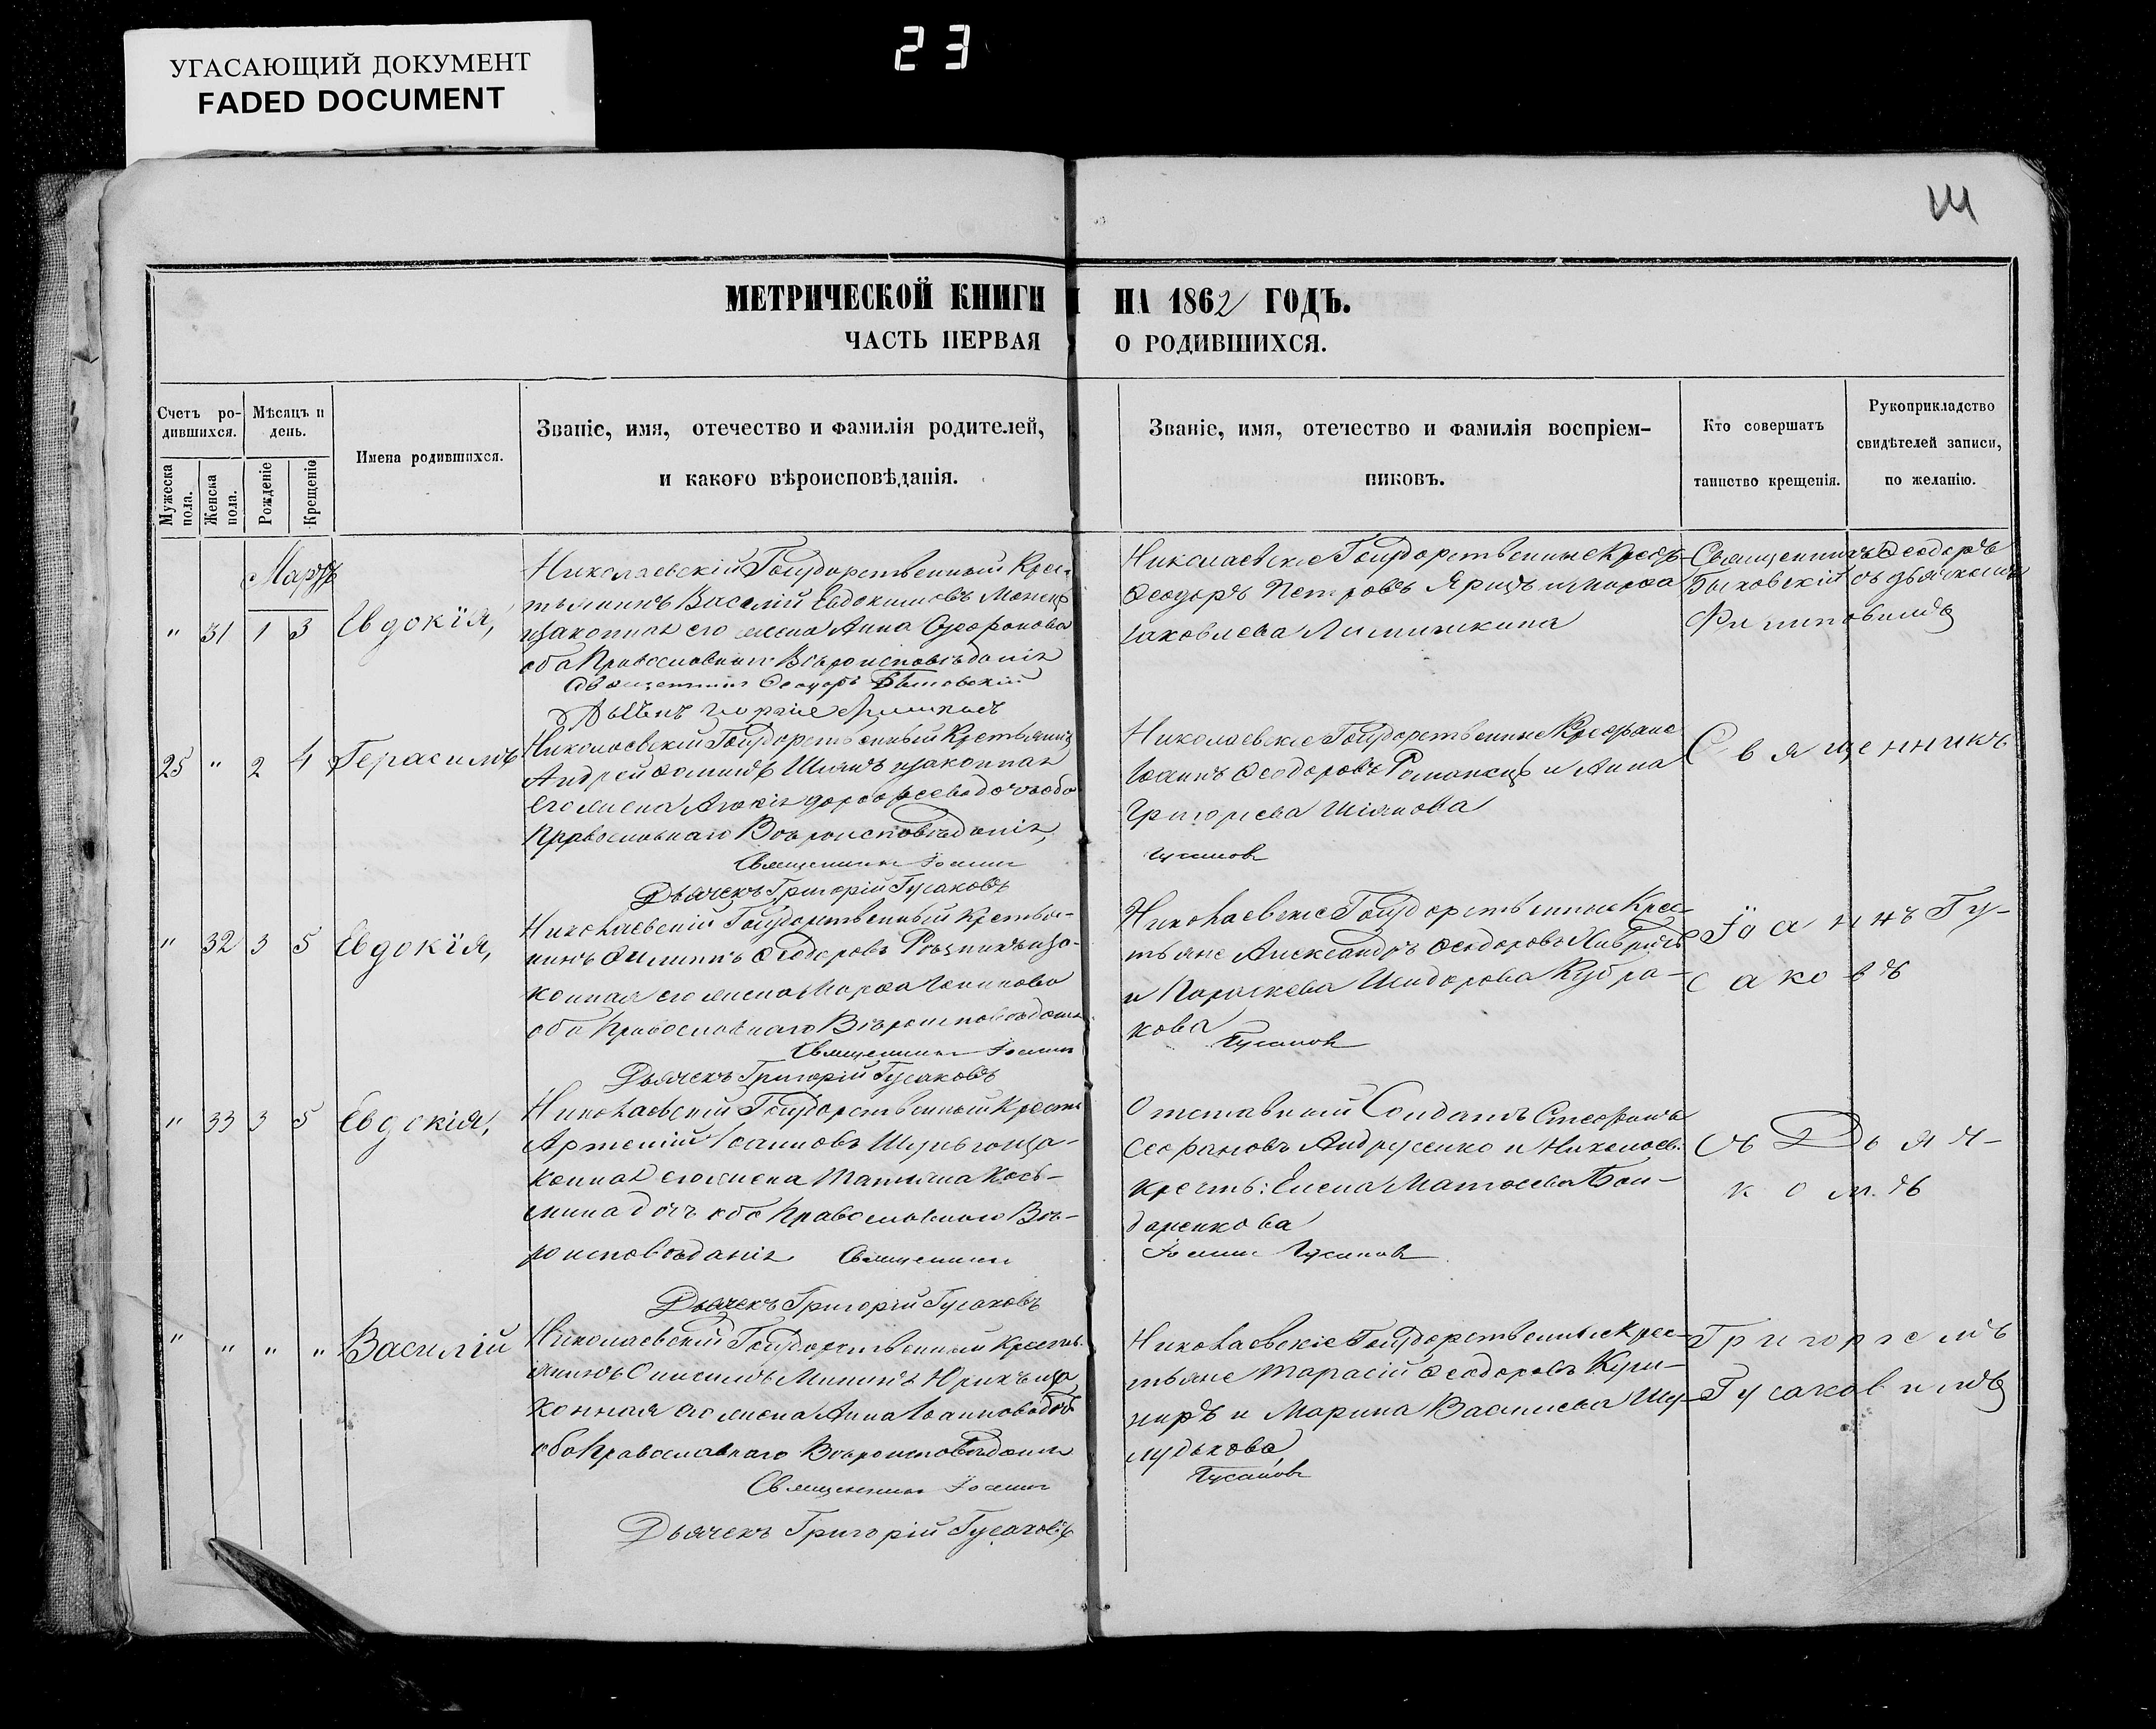 УГАСАЮЩИЙ ДОКУМЕНТ
FADED DOCUMENT
23
МЕТРИЧЕСКОЙ КНИГИ НА 1862 ГОДЪ.
ЧАСТЬ ПЕРВАЯ О РОДИВШИХСЯ.
Счетъ ро-
дившихся.
Мужеска пола.
Женска пола.
Мѣсяцъ и
день.
Рожденіе
Крещеніе
Имена родившихся.
Званіе, имя, отечество и фамилія родителей,
и какого вѣроисповѣданія.
Званіе, имя, отечество и фамилія воспріем-
никовъ.
Кто совершатъ
таинство крещенія.
Рукоприкладство
свидѣтелей записи,
по желанію.
Мартъ
" 31 1 3 Евдокія,
Николаевскій Государственный Крес-
тьянинъ Василій Евдокимовъ
изаконная его жена Анна
оба Православнаго Вѣроисповѣданія
Священникъ Ѳеодоръ
Николаевскіе Государственные
Ѳеодоръ Петровъ Ярицъ
Іаковлева
Священникъ Ѳеодоръ
Быховскій съ дьячкомъ
25 " 2 4 Герасимъ
Николаевскій Государственный Крестьянинъ
Андрей Шіянъ изаконная
его жена оба
Православнаго Вѣроисповѣданія,
Священникъ Іоаннъ
Дьячекъ Григорій Гусаковъ
Николаевскіе Государственные
Іоаннъ Ѳеодоровъ Романецъ и Анна
Григорьева Шіянова
Гусаковъ
Священникъ
" 32 3 5 Евдокія,
Николаевскій Государственный Крестья-
нинъ Филиппъ Ѳеодоровъ Рѣзникъ иза-
конная его жена Марѳа
оба Православнаго Вѣроисповѣданія
Священникъ Іоаннъ
Дьячекъ Григорій Гусаковъ
Николаевскіе Государственные Крес-
тьяне Александръ Ѳеодоровъ
и Параскева Исидорова Кубра-
кова
Гусаковъ
Іоаннъ Гу-
саковъ
" 33 3 5 Евдокія,
Николаевскій Государственный
Артемій Іоанновъ иза-
конная его жена Татьяна Кось-
мина дочь оба Православнаго Вѣ-
роисповѣданія Священникъ
Дьячекъ Григорій Гусаковъ
Отставный Солдатъ Стефанъ
Андрусенко и Николаев:
крестъ: Елена Матѳеева
Іоаннъ Гусаковъ
Съ Дьяч-
комъ
" " " " Василій
Николаевскій Государственный Кресть-
янинъ Онисимъ Мининъ Юрикъ иза
конная его жена Анна Іоаннова дочь
оба Православнаго Вѣроисповѣданія
Священникъ Іоаннъ
Дьячекъ Григорій Гусаковъ
Николаевскіе Государственные Крес-
тьяне Тарасій Ѳеодоровъ Куш-
ниръ и Марина Василіева Шу-
лудькова
Гусаковъ
Григоріемъ
Гусаковимъ